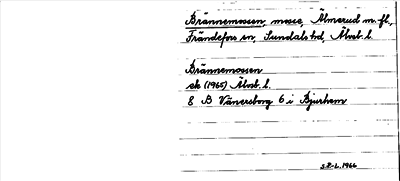 Brännemossen, mosse, Älmerud m. fl.,
Frändefors sn, Sundals hd, Älvsb. l.
Brännemossen
ek (1965) Älvsb. l.
8 B Vänersborg 6 i Bjurhem
S.E-L. 1966